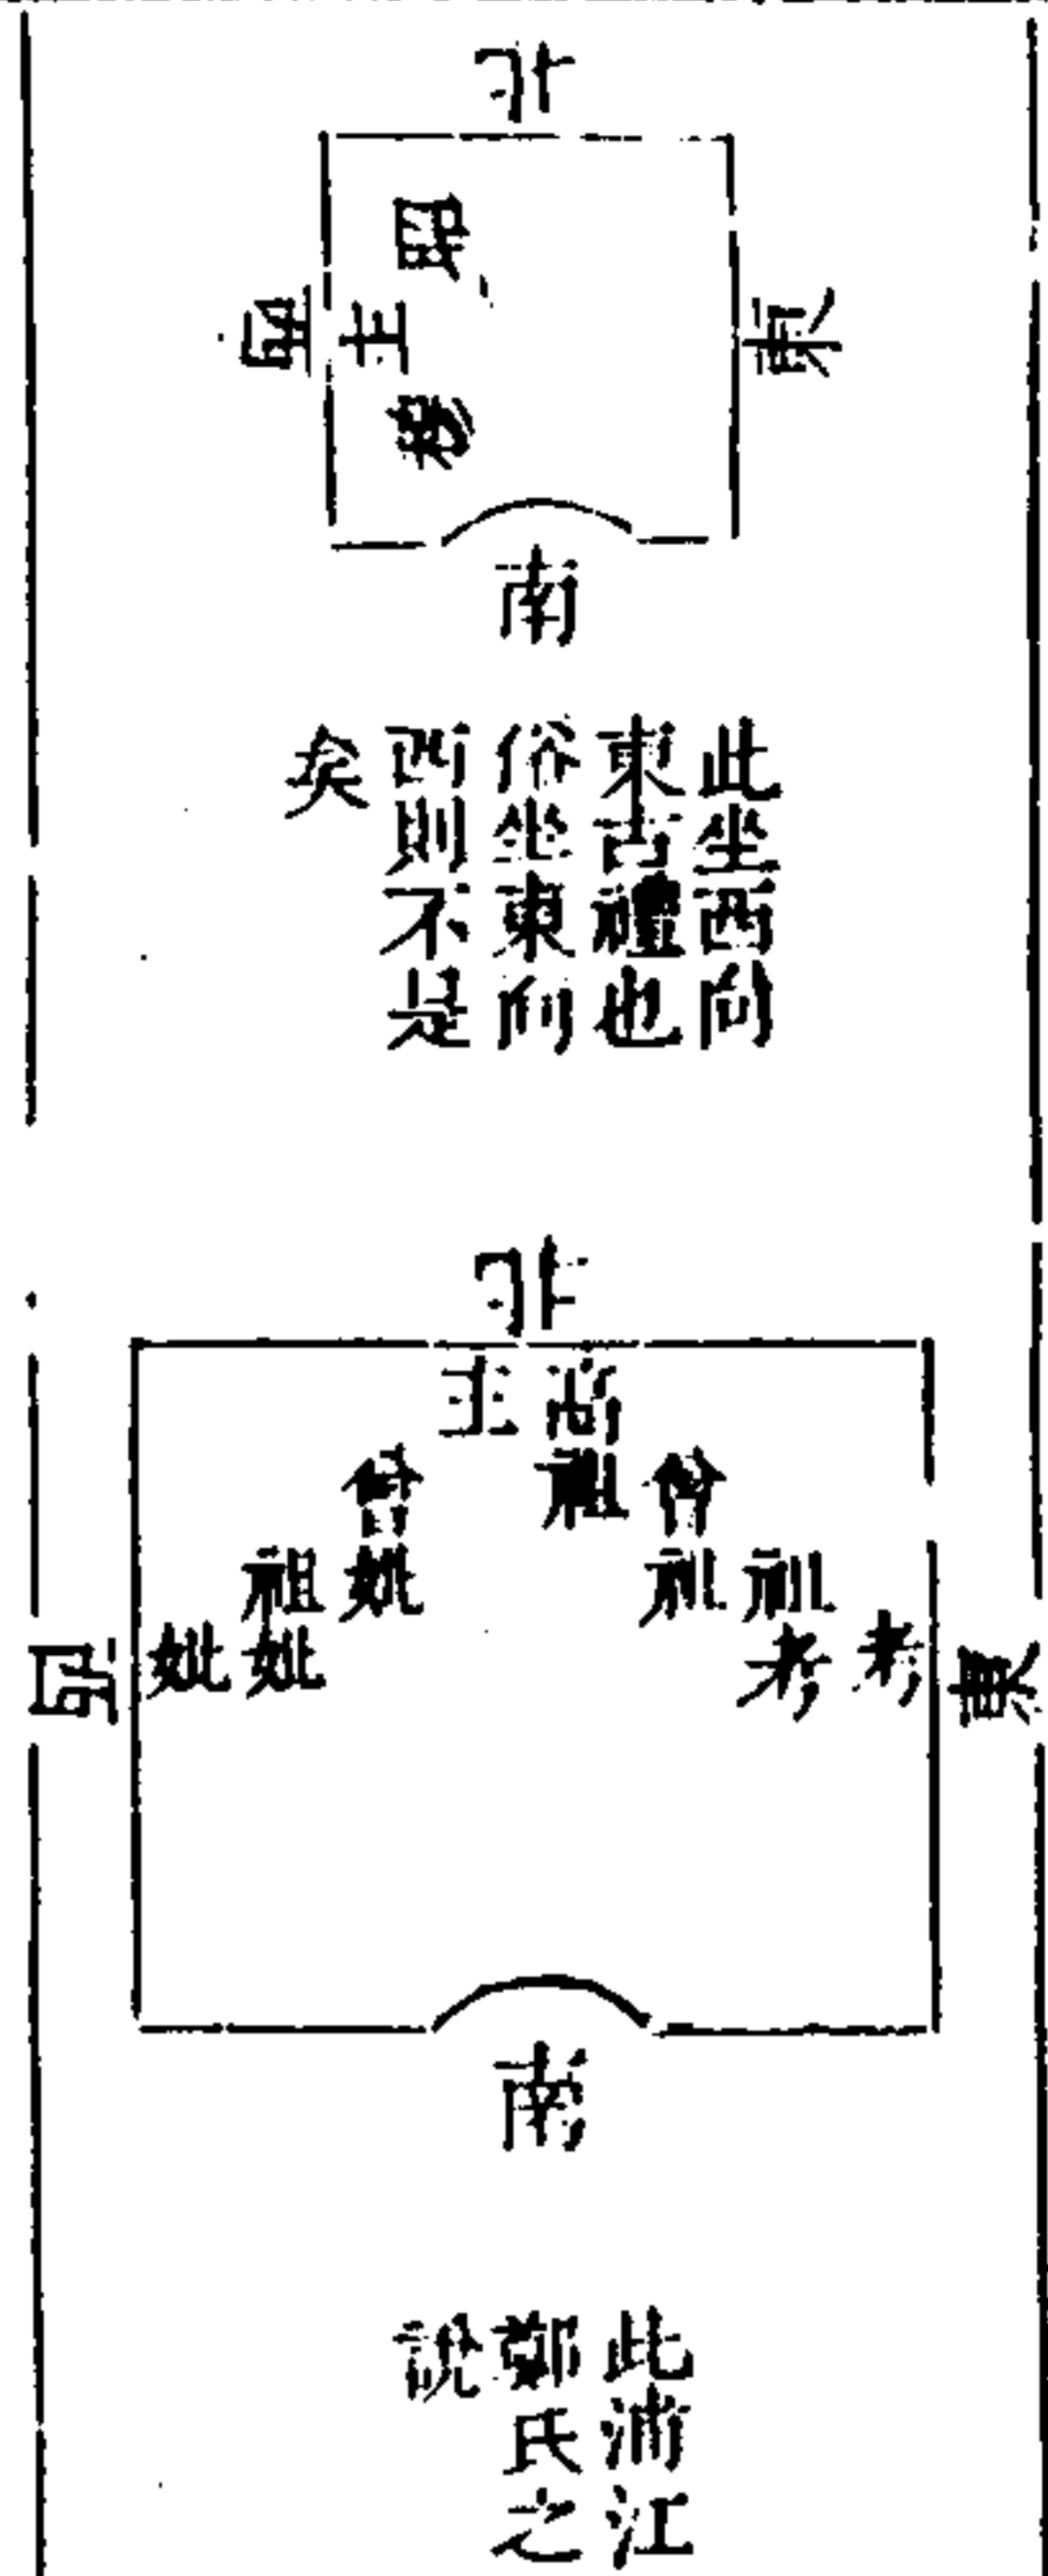 北
昭
西
主
東
穆
南
此坐西向
東古禮也
俗坐東向
西則不是
矣
北
高祖
主
曾祖
曾妣
祖考
祖妣
考
妣
東
西
南
此浦江
鄭氏之
說